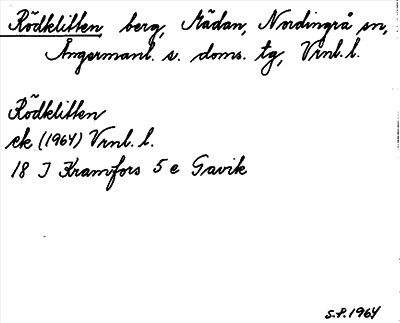 Rödklitten berg, Mädan, Nordingrå sn,
Ångermanl. s. doms. tg, Vrnl. l.
Rödklitten
ek (1964) Vrnl. l.
18 J Kramfors 5 e Gavik
S.P. 1964